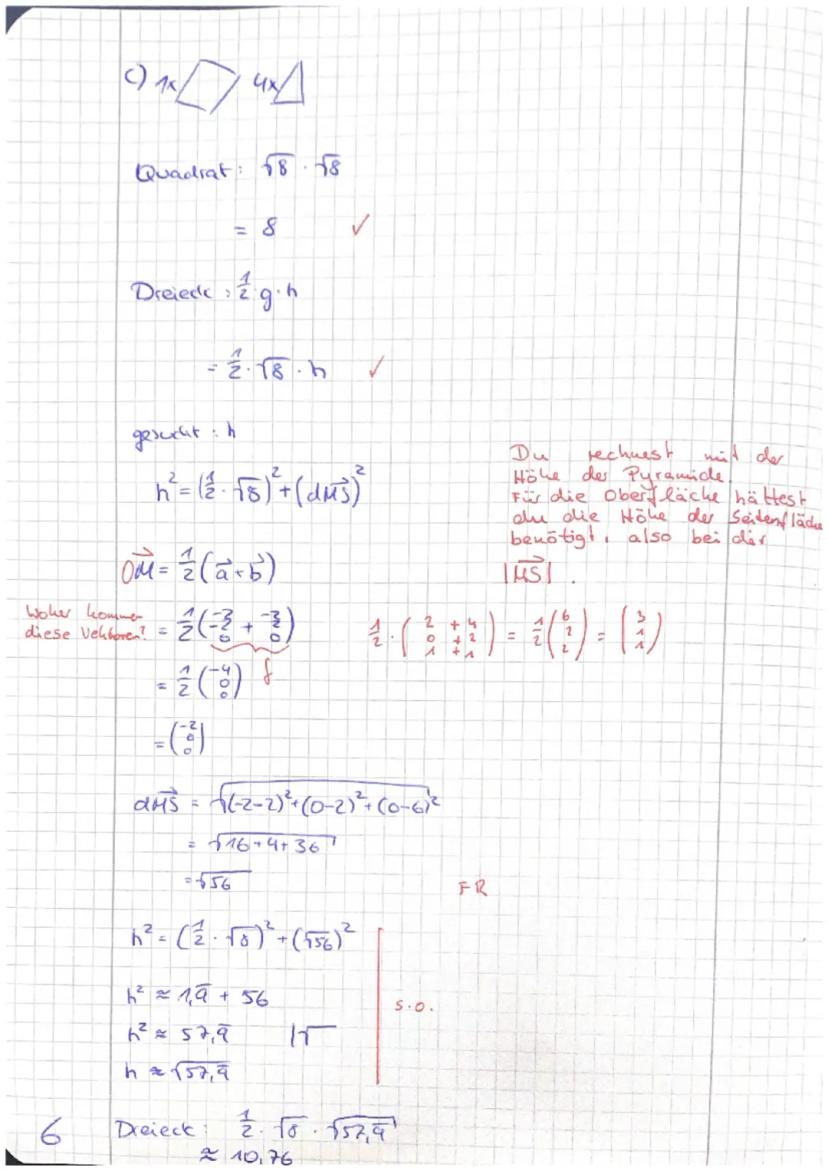 c) 1x 4x
Quadrat: √8 · √8
= 8 ✓
Dreieck: 1/2 · g · h
= 1/2 · √8 · h ✓
gesucht: h
h² = (1/2 · √8)² + (dM⃗S)²
Du rechnest mit der
Höhe der Pyramide.
Für die Oberfläche hättest
du die Höhe der Seitenfläche
benötigt, also bei dir
|M⃗S|.
OM⃗ = 1/2 (a⃗ + b⃗)
Woher kommen
diese Vektoren?
= 1/2 ((-2 -2 0) + (-2 2 0))
f
1/2 · (2+4 0+2 1+1) = 1/2 (6 2 2) = (3 1 1)
= 1/2 (-4 0 0)
= (-2 0 0)
dM⃗S = √(-2-2)² + (0-2)² + (0-6)²
= √16+4+36
= √56
FR
h² = (1/2 · √8)² + (√56)²
h² ≈ 1,9̅ + 56
s.o.
h² ≈ 57,9̅ |√
h ≈ √57,9̅
6
Dreieck: 1/2 · √8 · √57,9̅
≈ 10,76